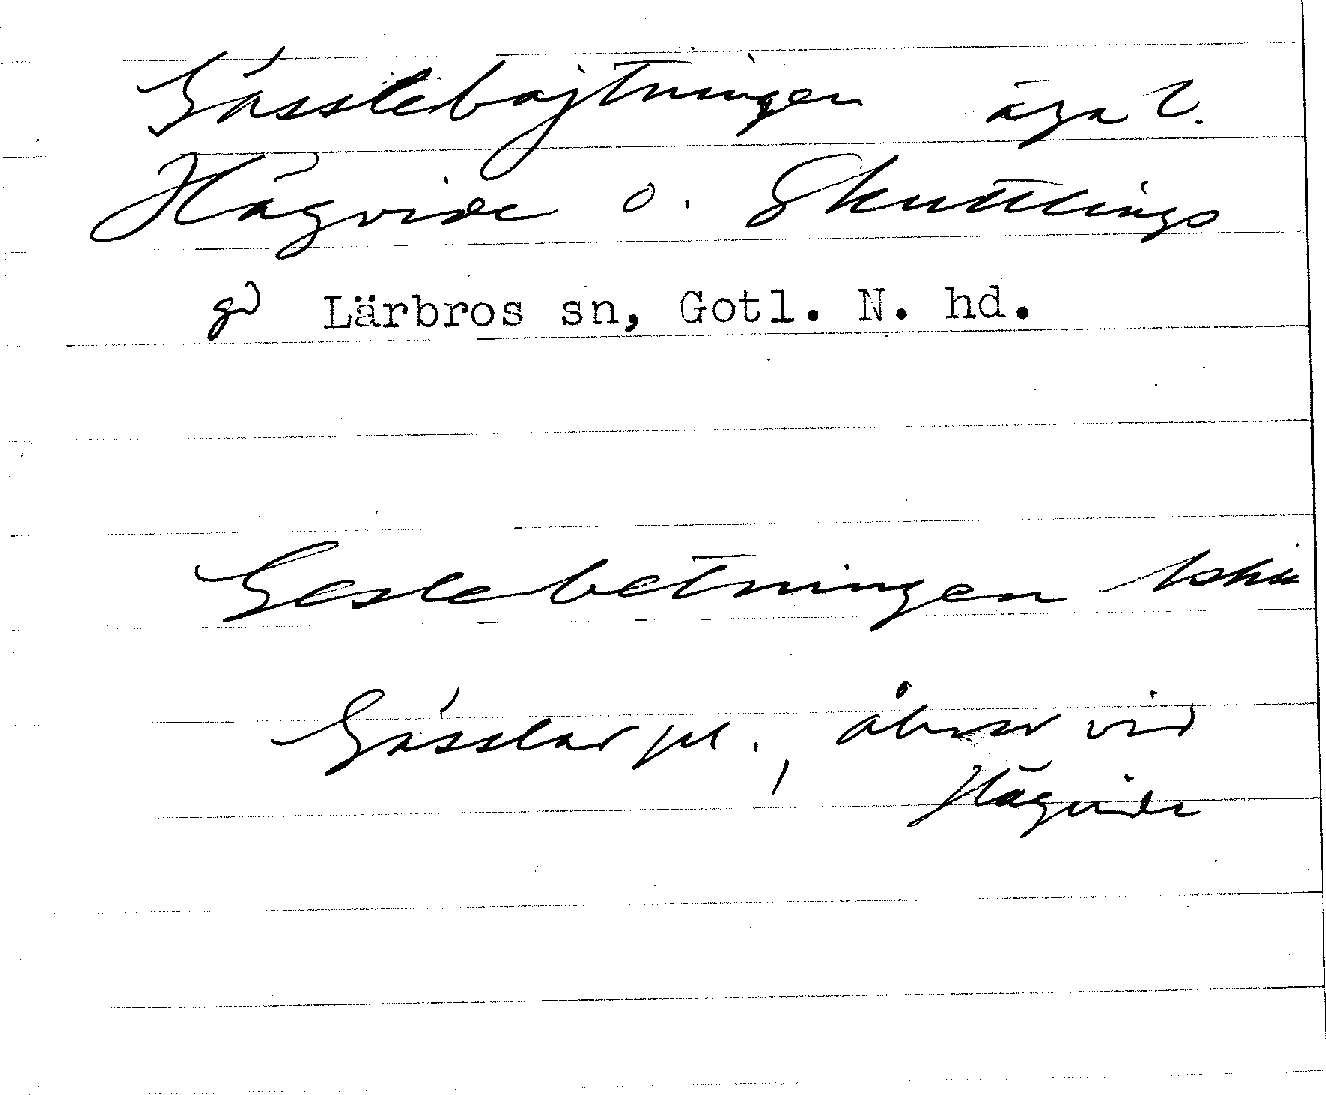 Gässlebajtningen äga t.
Hägvide o. Skuttlings
gd Lärbros sn, Gotl. N. hd.
Geslebetningen 1:ska
Gässlar pl., åkrar vid
Hägvide